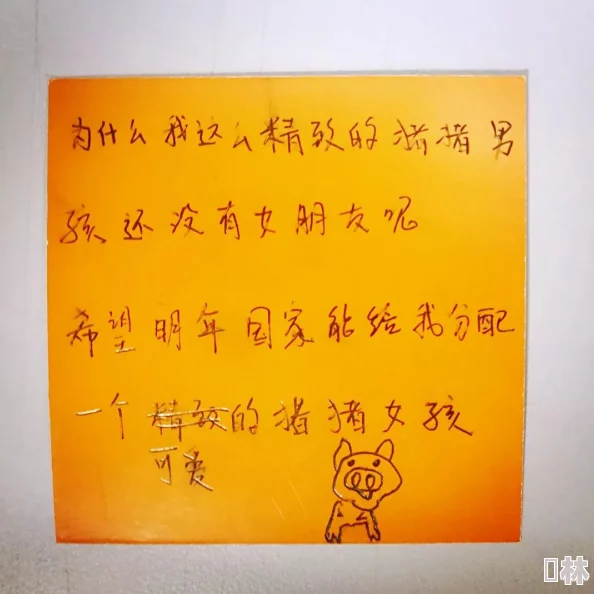 为什么我这么精致的猪猪男
孩还没有女朋友呢
希望明年国家能给我分配
一个精致的猪猪女孩
可爱
林